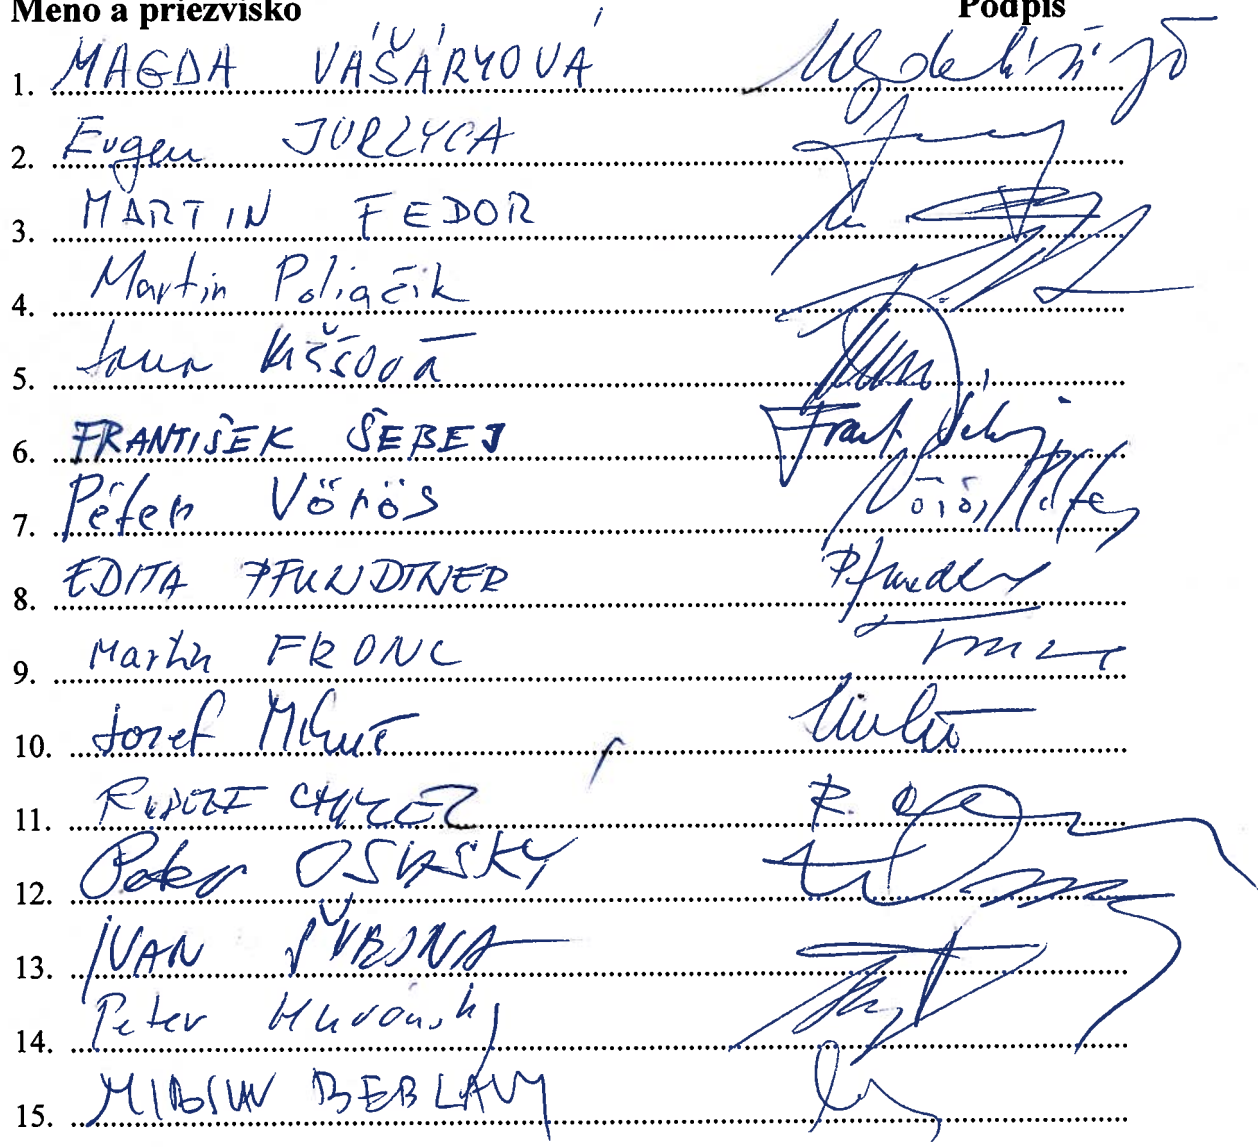 Meno a priezvisko Podpis
1. MAGDA VÁŠÁRYOVÁ
2. Eugen JURZYCA
3. MARTIN FEDOR
4. Martin Poliačik
5. Jana Kiššová
6. FRANTIŠEK ŠEBEJ Frant. Šebej
7. Péter Vörös Vörös Péter
8. EDITA PFUNDTNER Pfundtner
9. Martin FRONC Fronc
10. Jozef Mikuš Mikuš
11. RUDOLF CHMEL R.
12. Peter OSUSKÝ
13. IVAN ŠVEJNA
14. Peter
15. MIROSLAV BEBLAVY